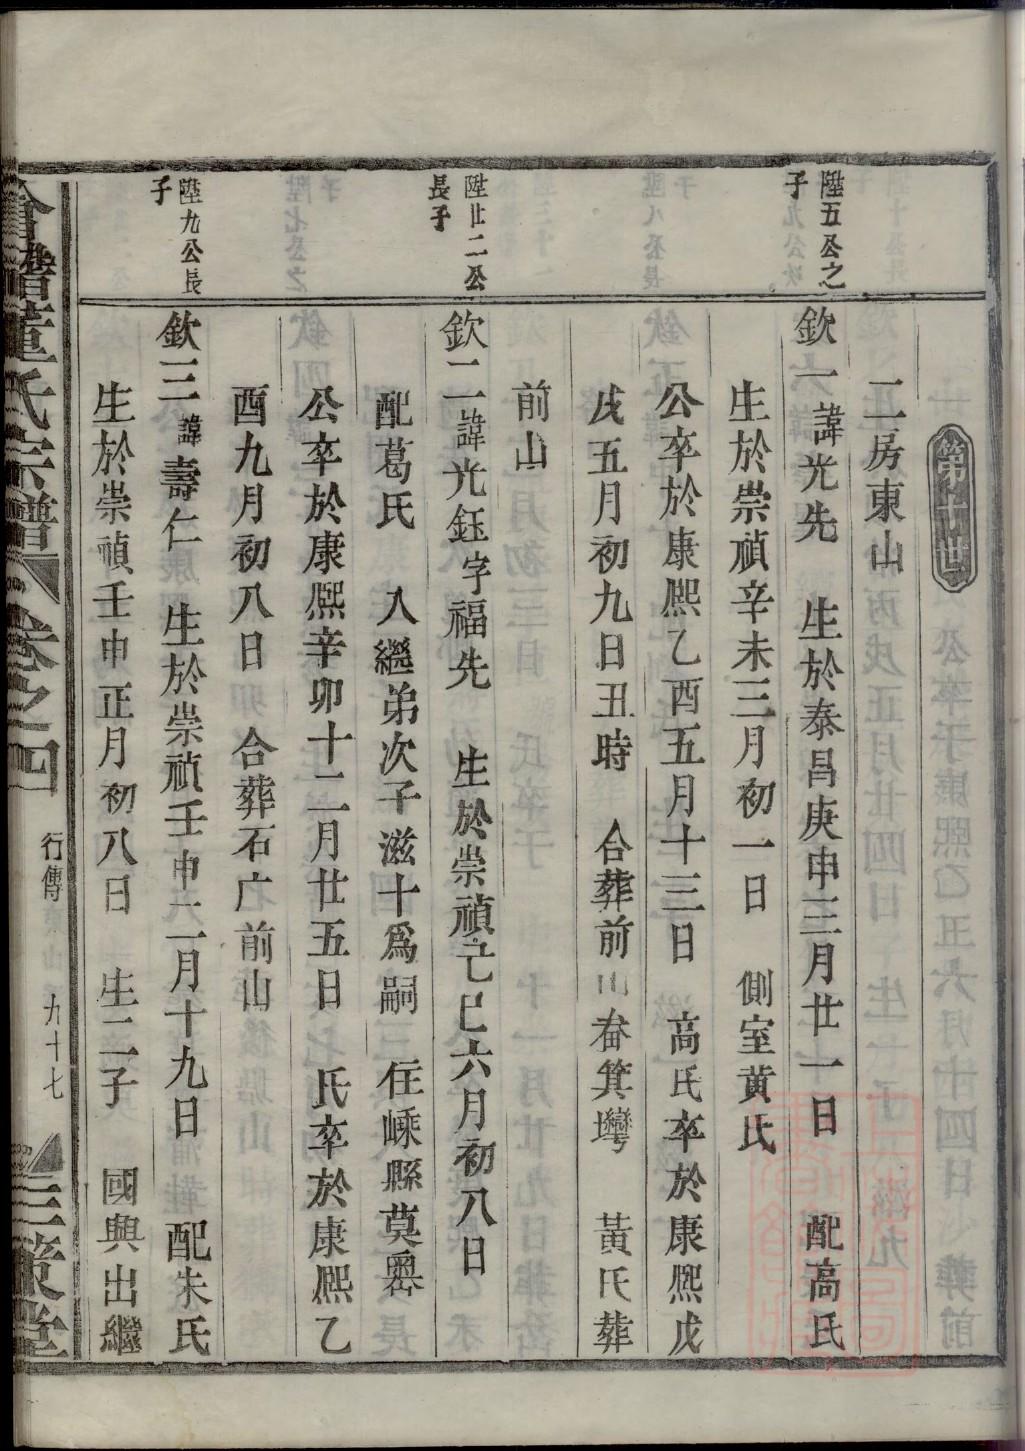 第十世
二房東山
陞五公之
子
欽一諱光先　生於泰昌庚申三月廿一日　配高氏
生於崇禎辛未三月初一日　側室黄氏
公卒於康熙乙酉五月十三日　高氏卒於康熙戊
戌五月初九日丑時　合葬前山畚箕灣　黃氏葬
前山
陞廿二公
長子
欽二諱光鈺字福先　生於崇禎己巳六月初八日
配葛氏　入繼弟次子滋十爲嗣　住嵊縣莫嶴
公卒於康熙辛卯十二月廿五日　氏卒於康熙乙
酉九月初八日　合葬石广前山
陞九公長
子
欽三諱壽仁　生於崇禎壬申二月十九日　配朱氏
生於崇禎壬申正月初八日　生二子　國興出繼
董氏宗譜　卷之四　行傳東山　九十七　三策堂